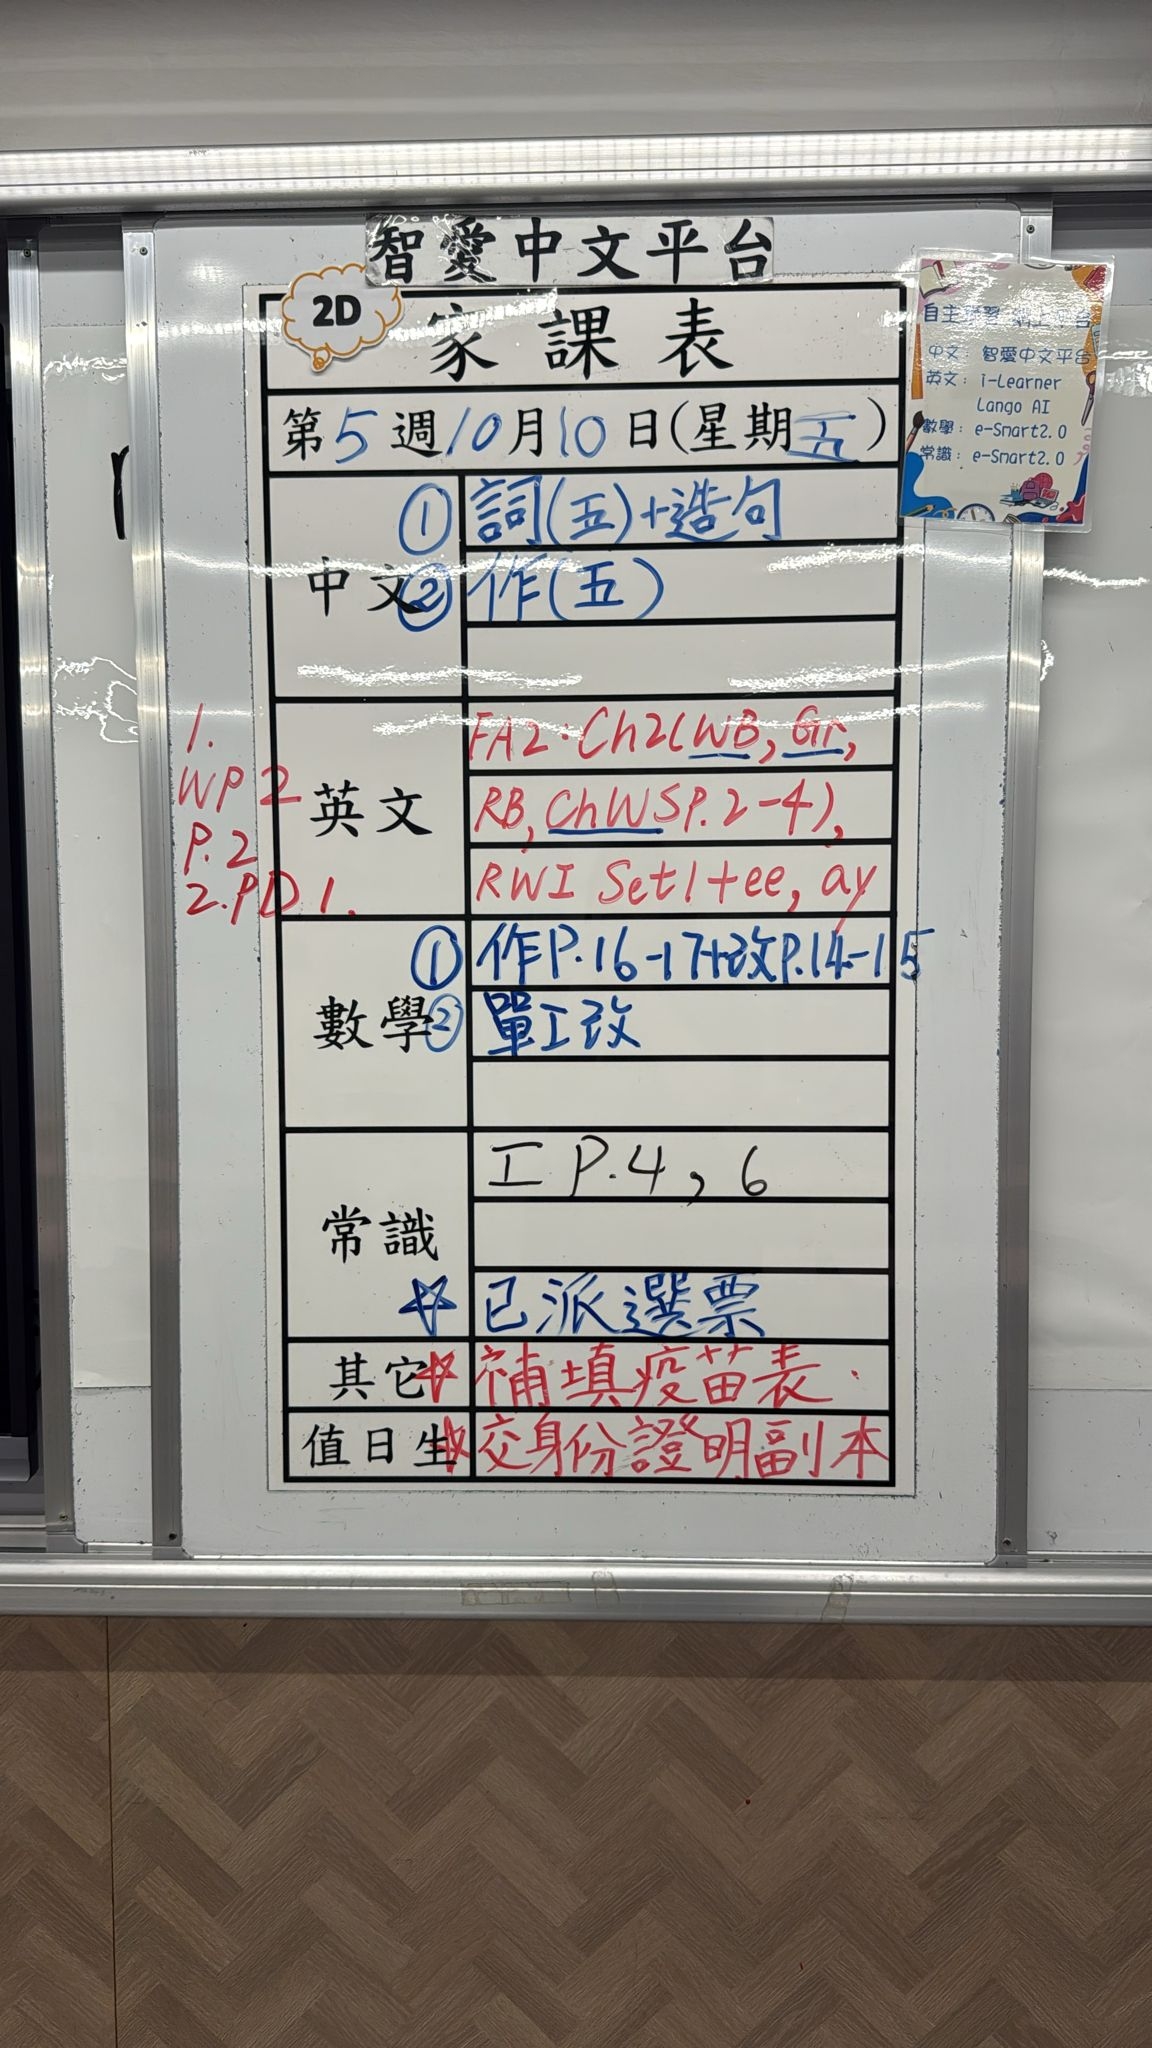 智愛中文平台
2D
家課表
第5週10月10日(星期五)
中文
① 詞(五)+造句
② 作(五)
英文
1.
WP2
P.2
2.PD1.
FA2:Ch2(WB, Gr,
RB, ChWSP.2-4),
RWI Set1+ee, ay
數學
① 作P.16-17+改P.14-15
② 單工改
常識
工P.4,6
☆ 已派選票
其它
☆ 補填疫苗表.
值日生
☆ 交身份證明副本
自主學習 平台
中文:智愛中文平台
英文:i-Learner
Lango AI
數學:e-Smart2.0
常識:e-Smart2.0